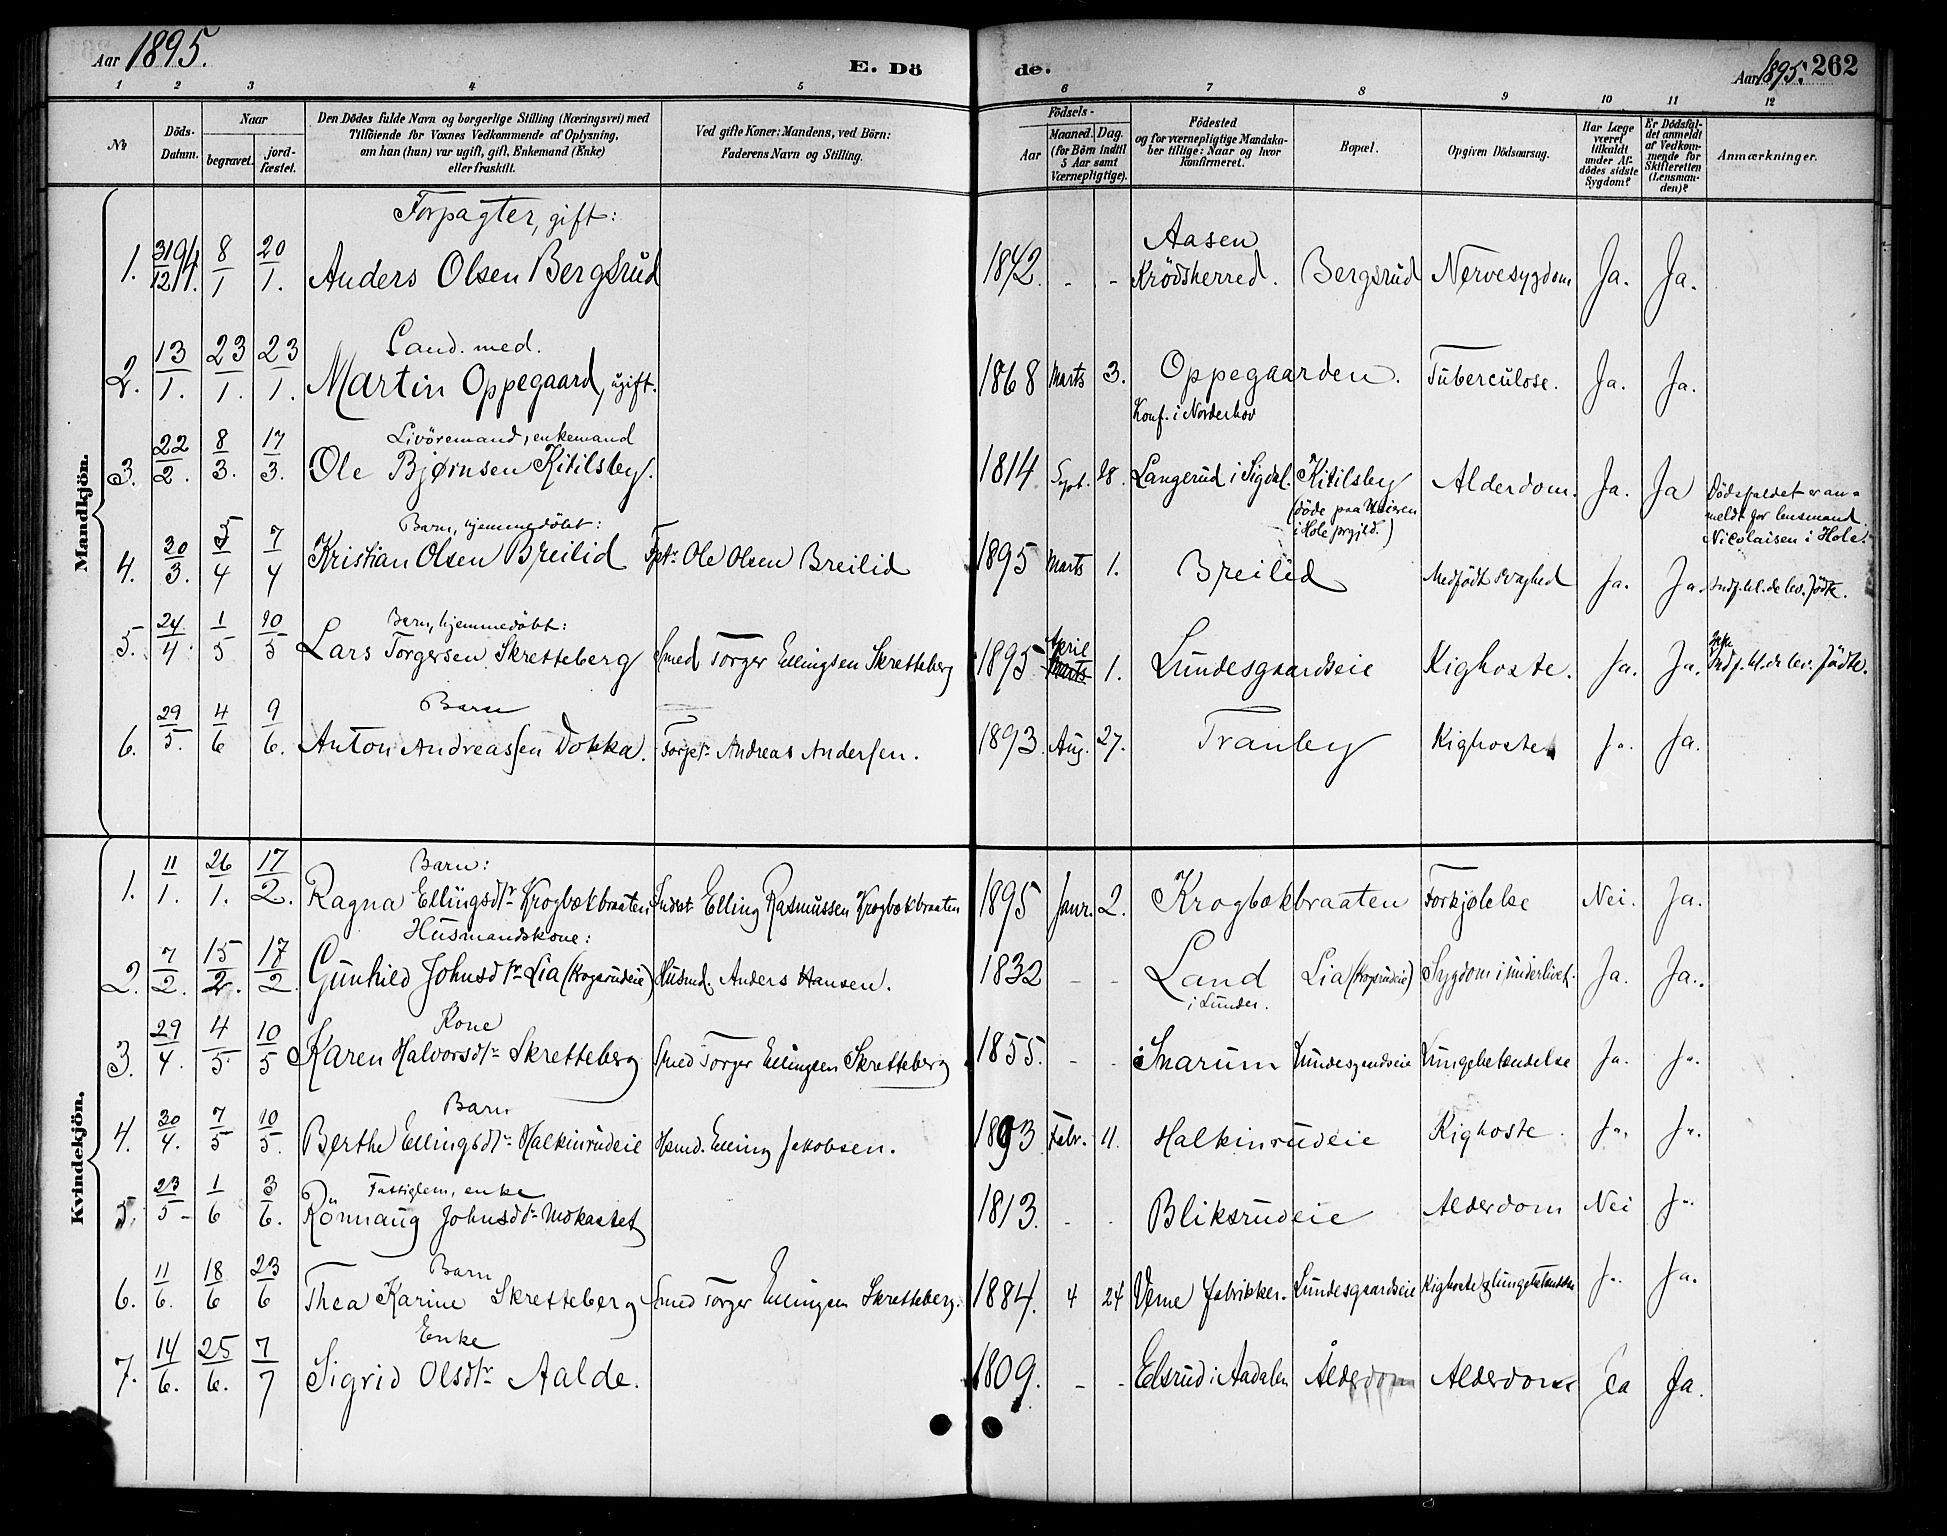 Aar 1895.
E. Döde.
Aar 1895. 262
1 2 3 4 5 6 7 8 9 10 11 12
No
Döds-Datum.
Naar
begravet.
jord-fæstet.
Den Dödes fulde Navn og borgerlige Stilling (Næringsvei) med
Tilföiende for Voxnes Vedkommende af Oplysning,
om han (hun) var ugift, gift, Enkemand (Enke)
eller fraskilt.
Ved gifte Koner: Mandens, ved Börn:
Faderens Navn og Stilling.
Födsels-
Aar
Maaned. Dag.
(for Börn indtil
5 Aar samt
Værnepligtige).
Födested
og for værnepligtige Mandska-
ber tillige: Naar og hvor
konfirmeret.
Bopæl.
Opgiven Dödsaarsag.
Har Læge
været
tilkaldt
under Af-
dödes sidste
Sygdom?
Er Dödsfal-
det anmeldt
af Vedkom-
mende for
Skifteretten
(Lensman-
den)?
Anmærkninger.
Mandkjön.
Forpagter, gift:
1. 31/12 94. 8/1 20/1. Anders Olsen Bergsrud 1842. - - Aasen Krödsherred. Bergsrud Nervesygdom Ja. Ja.
Cand. med.
2. 13/1. 23/1. 23/1. Martin Oppegaard, ugift. 1868 Marts 3. Oppegaarden. Tuberculose. Ja. Ja.
Konf. i Norderhov
Livöremand, enkemand
3. 22/2. 8/3. 17/3. Ole Bjørnsen Kitilsby. 1814 Sept. 28. Langerud i Sigdal. Kitilsby Alderdom. Ja. Ja Dödsfaldet er an-
(döde paa
i Hole prgjld.)
meldt for lensmand
Nicolaisen i Hole.
Barn, hjemmedöbt:
4. 30/3. 5/4 7/4 Kristian Olsen Breilid Fpt. Ole Olsen Breilid 1895 Marts 1. Breilid Medfödt svaghed Ja. Ja. Indf. bl. de lev. födte.
Barn, hjemmedöbt:
5. 24/4. 1/5 10/5 Lars Torgersen Skretteberg Smed Torger Ellingsen Skretteberg 1895 April Marts 1. Lundesgaardseie Kighoste. Ja. Ja. Ikke Indf. bl. de lev. födte.
Barn
6. 29/5. 4/6 9/6. Anton Andreassen Dokka. Forpt. Andreas Andersen. 1893. Aug. 27. Tranby Kighoste. Ja. Ja.
Kvindekjön.
Barn:
1. 11/1. 26/1. 17/2. Ragna Ellingsdtr Krogbækbraaten Indst. Elling Rasmussen Krogbækbraaten 1895 Janr. 2. Krogbækbraaten Forkjølelse Nei. Ja.
Husmandskone:
2. 7/2. 15/2. 17/2 Gunhild Johnsdtr Lia (Kogsrudeie) Husmd. Anders Hansen. 1832 - - Land Lia (Kogsrudeie) Sygdom i underlivet. Ja. Ja.
i Lunder.
Kone
3. 29/4. 4/5 10/5 Karen Halvorsdtr Skretteberg Smed Torger Ellingsen Skretteberg 1855. - - Snarum Lundesgaardseie Lungebetændelse Ja. Ja.
Barn
4. 30/4. 7/5 10/5. Berthe Ellingsdtr. Halkinrudeie Hsmd. Elling Jakobsen. 1893 Febr. 11. Halkinrudeie Kighoste. Ja. Ja.
Fattiglem, enke
5. 23/5 1/6 3/6. Rönnaug Johnsdtr. Mokastet 1813. - - Bliksrudeie Alderdom Nei Ja.
Barn
6. 11/6. 18/6 23/6 Thea Karine Skretteberg Smed Torger Ellingsen Skretteberg. 1884. 4 24 Veme fabrikker. Lundesgaardseie Kighoste og Lungebetændelse Ja. Ja.
Enke
7. 14/6. 25/6. 7/7 Sigrid Olsdtr Aalde. 1809. - - Elsrud i Aadalen Alderdom Alderdom Ja Ja.